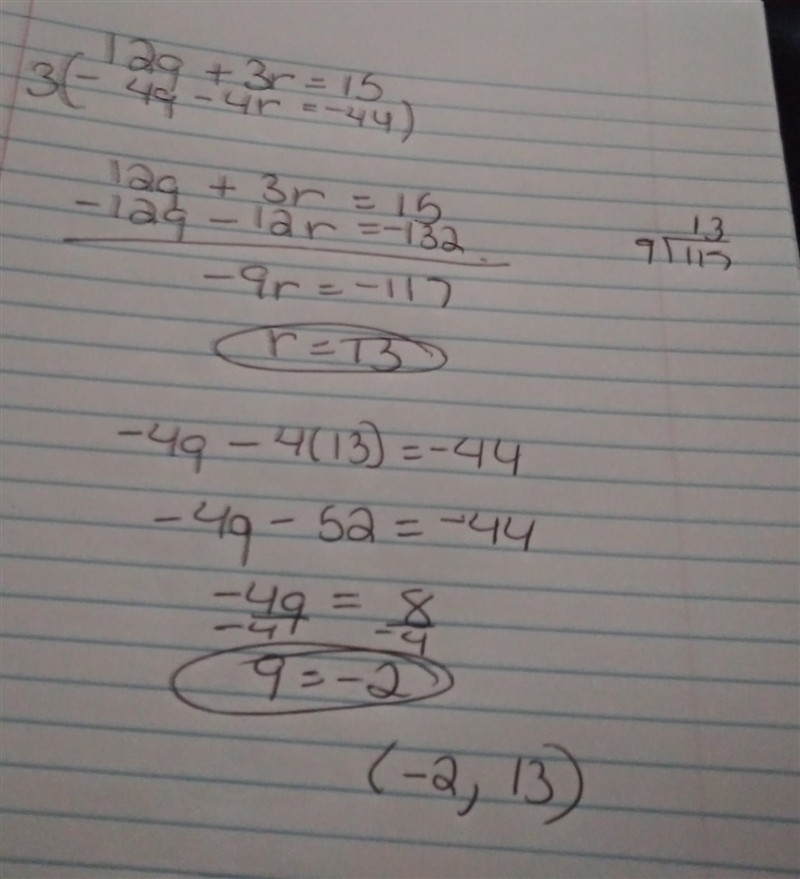 12q + 3r = 15
3(-4q - 4r = -44)
12q + 3r = 15
-12q - 12r = -132
-9r = -117
13
9)117
r = 13
-4q - 4(13) = -44
-4q - 52 = -44
-4q = 8
-4 -4
q = -2
(-2, 13)